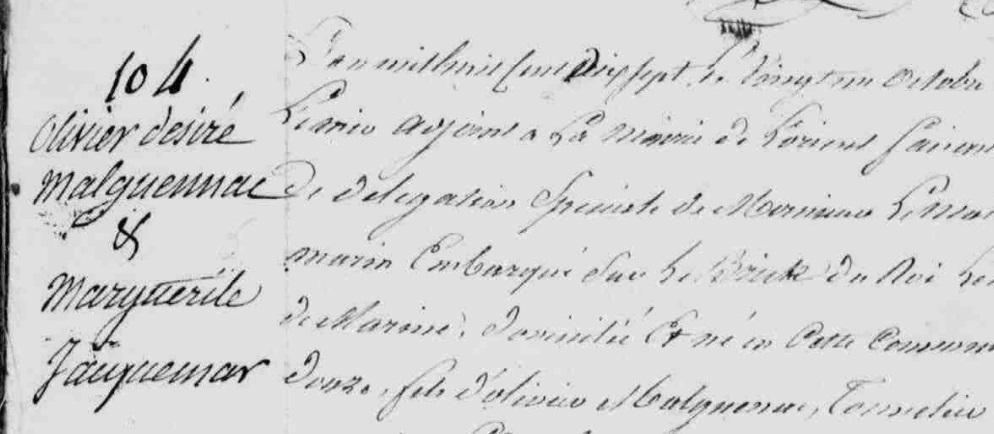 104
Olivier désiré
Malguennac
&
Marguerite
Jacquemar
L'an mil huit Cent Dix sept, le Vingt un Octobre
adjoint a La Mairie de Lorient faisant
De délégation Spéciale de Monsieur Le Mai
marin Embarqué Sur Le Brick du Roi Le
de Marine, Domicilié Et né en Cette Commun
Douze, fils d'olivier Malguennac, Tonnelier